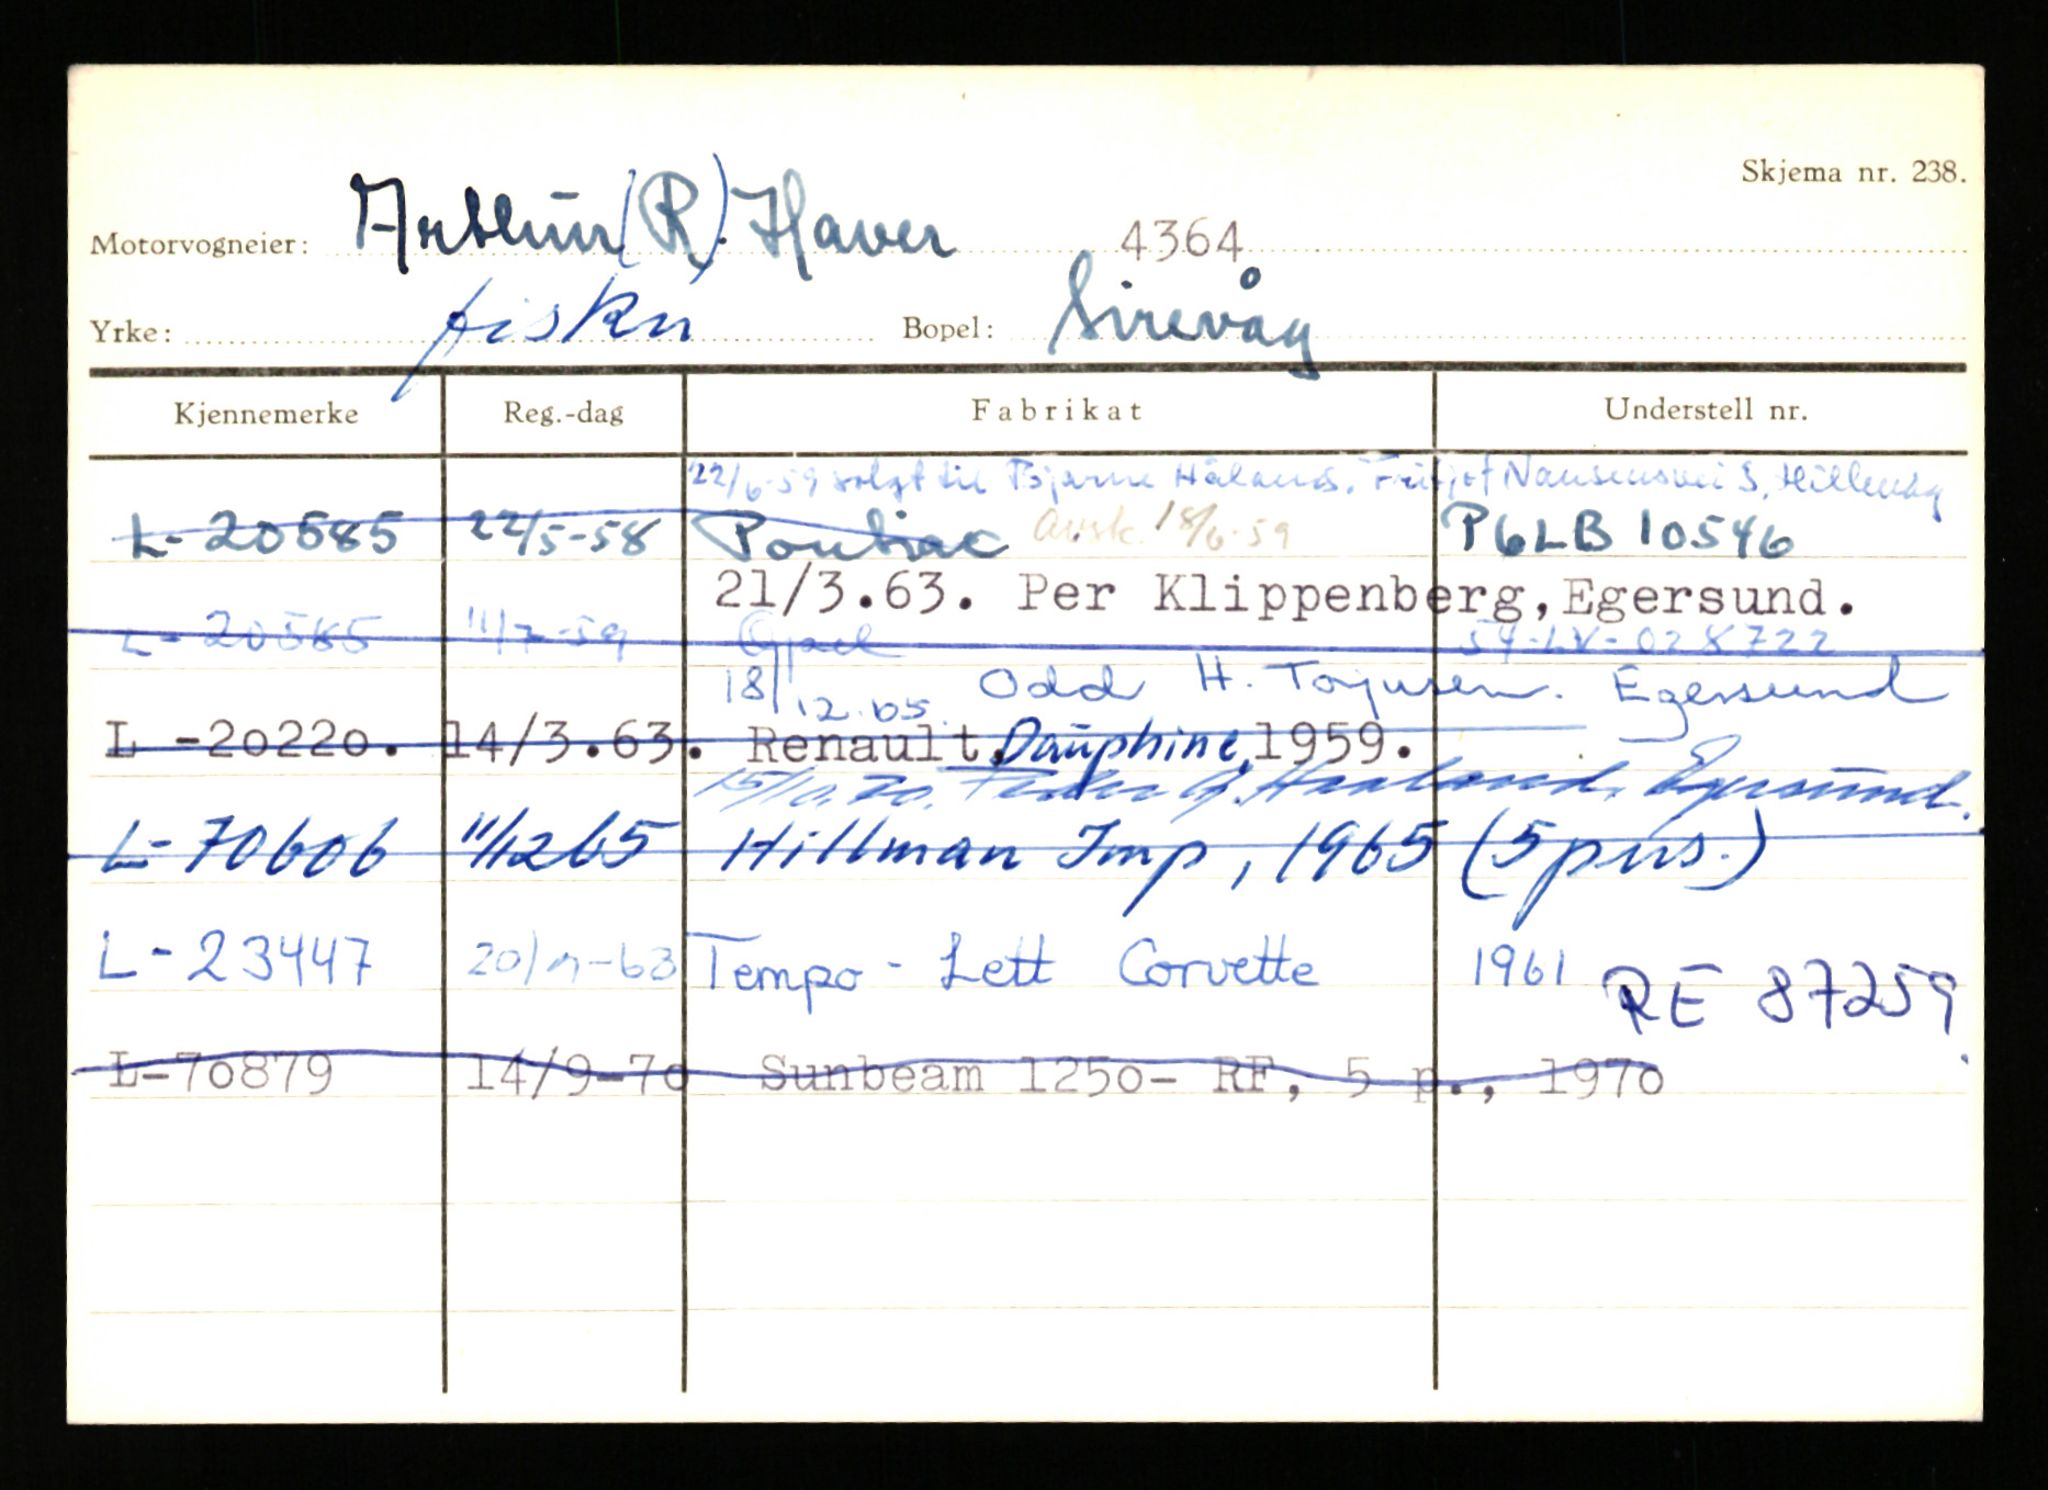 Skjema nr. 238.
Motorvogneier: Arthur (R). Haver 4364
Yrke: fisker Bopel: Sirevåg
Kjennemerke Reg.-dag Fabrikat Understell nr.
22/6-59 solgt til Bjarne Håland, Fritjof Nansensvei 3, Hillevåg
L-20585 22/5-58 Pontiac Avsk. 18/6-59 P6LB 10546
21/3.63. Per Klippenberg, Egersund.
L-20585 11/7-59 Opel 54-LV-028722
18/12.65. Odd H. Tojusen. Egersund
L -20220. 14/3.63. Renault. Dauphine, 1959.
15/10.70. Peder G. Haaland, Egersund.
L-70606 11/1265 Hillman Imp, 1965 (5 pers.)
L-23447 20/11-63 Tempo-Lett Corvette 1961 RE 87259.
L-70879 14/9-70 Sunbeam 1250- RF, 5 p., 1970